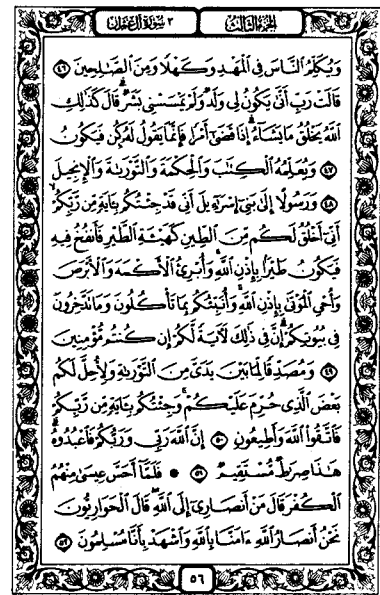 الجزء الثالث
٣ سورة آل عمران
وَيُكَلِّمُ النَّاسَ فِي الْمَهْدِ وَكَهْلًا وَمِنَ الصَّٰلِحِينَ ٤٦
قَالَتْ رَبِّ أَنَّىٰ يَكُونُ لِي وَلَدٌ وَلَمْ يَمْسَسْنِي بَشَرٌ قَالَ كَذَٰلِكِ
اللَّهُ يَخْلُقُ مَا يَشَاءُ إِذَا قَضَىٰ أَمْرًا فَإِنَّمَا يَقُولُ لَهُ كُن فَيَكُونُ
٤٧ وَيُعَلِّمُهُ الْكِتَٰبَ وَالْحِكْمَةَ وَالتَّوْرَىٰةَ وَالْإِنجِيلَ
٤٨ وَرَسُولًا إِلَىٰ بَنِي إِسْرَٰءِيلَ أَنِّي قَدْ جِئْتُكُم بِـَٔايَةٍ مِّن رَّبِّكُمْ
أَنِّي أَخْلُقُ لَكُم مِّنَ الطِّينِ كَهَيْـَٔةِ الطَّيْرِ فَأَنفُخُ فِيهِ
فَيَكُونُ طَيْرًا بِإِذْنِ اللَّهِ وَأُبْرِئُ الْأَكْمَهَ وَالْأَبْرَصَ
وَأُحْيِ الْمَوْتَىٰ بِإِذْنِ اللَّهِ وَأُنَبِّئُكُم بِمَا تَأْكُلُونَ وَمَا تَدَّخِرُونَ
فِي بُيُوتِكُمْ إِنَّ فِي ذَٰلِكَ لَـَٔايَةً لَّكُمْ إِن كُنتُم مُّؤْمِنِينَ
٤٩ وَمُصَدِّقًا لِّمَا بَيْنَ يَدَيَّ مِنَ التَّوْرَىٰةِ وَلِأُحِلَّ لَكُم
بَعْضَ الَّذِي حُرِّمَ عَلَيْكُمْ وَجِئْتُكُم بِـَٔايَةٍ مِّن رَّبِّكُمْ
فَاتَّقُوا اللَّهَ وَأَطِيعُونِ ٥٠ إِنَّ اللَّهَ رَبِّي وَرَبُّكُمْ فَاعْبُدُوهُ
هَٰذَا صِرَٰطٌ مُّسْتَقِيمٌ ٥١ ۞ فَلَمَّا أَحَسَّ عِيسَىٰ مِنْهُمُ
الْكُفْرَ قَالَ مَنْ أَنصَارِي إِلَى اللَّهِ قَالَ الْحَوَارِيُّونَ
نَحْنُ أَنصَارُ اللَّهِ ءَامَنَّا بِاللَّهِ وَاشْهَدْ بِأَنَّا مُسْلِمُونَ ٥٢
٥٦